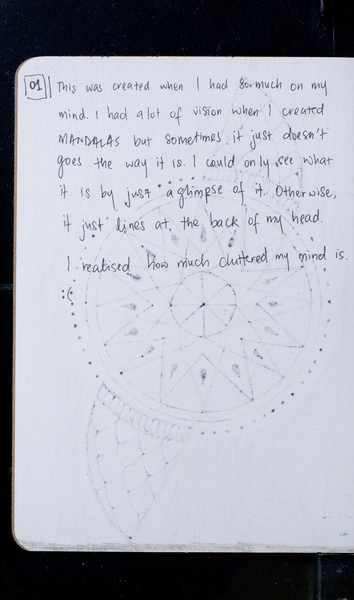 01 This was created when I had so much on my
mind. I had a lot of vision when I created
MANDALAS but sometimes, it just doesn't
goes the way it is. I could only see what
it is by just a glimpse of it. Otherwise,
it just lines at the back of my head.
I realised how much cluttered my mind is.
:(